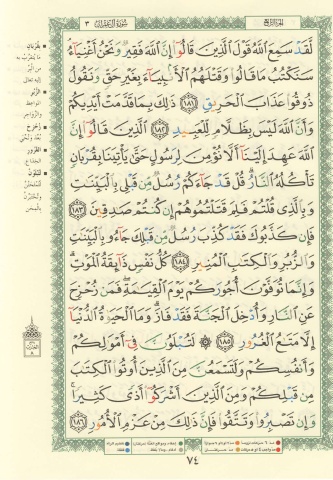 سورة آل عمران ٣
الجزء الرابع
لَّقَدْ سَمِعَ ٱللَّهُ قَوْلَ ٱلَّذِينَ قَالُوٓا۟ إِنَّ ٱللَّهَ فَقِيرٌ وَنَحْنُ أَغْنِيَآءُ
سَنَكْتُبُ مَا قَالُوا۟ وَقَتْلَهُمُ ٱلْأَنۢبِيَآءَ بِغَيْرِ حَقٍّ وَنَقُولُ
ذُوقُوا۟ عَذَابَ ٱلْحَرِيقِ ﴿١٨١﴾ ذَٰلِكَ بِمَا قَدَّمَتْ أَيْدِيكُمْ
وَأَنَّ ٱللَّهَ لَيْسَ بِظَلَّامٍ لِّلْعَبِيدِ ﴿١٨٢﴾ ٱلَّذِينَ قَالُوٓا۟ إِنَّ
ٱللَّهَ عَهِدَ إِلَيْنَآ أَلَّا نُؤْمِنَ لِرَسُولٍ حَتَّىٰ يَأْتِيَنَا بِقُرْبَانٍ
تَأْكُلُهُ ٱلنَّارُ ۗ قُلْ قَدْ جَآءَكُمْ رُسُلٌ مِّن قَبْلِى بِٱلْبَيِّنَٰتِ
وَبِٱلَّذِى قُلْتُمْ فَلِمَ قَتَلْتُمُوهُمْ إِن كُنتُمْ صَٰدِقِينَ ﴿١٨٣﴾
فَإِن كَذَّبُوكَ فَقَدْ كُذِّبَ رُسُلٌ مِّن قَبْلِكَ جَآءُو بِٱلْبَيِّنَٰتِ
وَٱلزُّبُرِ وَٱلْكِتَٰبِ ٱلْمُنِيرِ ﴿١٨٤﴾ كُلُّ نَفْسٍ ذَآئِقَةُ ٱلْمَوْتِ ۗ
وَإِنَّمَا تُوَفَّوْنَ أُجُورَكُمْ يَوْمَ ٱلْقِيَٰمَةِ ۖ فَمَن زُحْزِحَ
عَنِ ٱلنَّارِ وَأُدْخِلَ ٱلْجَنَّةَ فَقَدْ فَازَ ۗ وَمَا ٱلْحَيَوٰةُ ٱلدُّنْيَآ
إِلَّا مَتَٰعُ ٱلْغُرُورِ ﴿١٨٥﴾ ۞ لَتُبْلَوُنَّ فِىٓ أَمْوَٰلِكُمْ
وَأَنفُسِكُمْ وَلَتَسْمَعُنَّ مِنَ ٱلَّذِينَ أُوتُوا۟ ٱلْكِتَٰبَ
مِن قَبْلِكُمْ وَمِنَ ٱلَّذِينَ أَشْرَكُوٓا۟ أَذًى كَثِيرًا ۚ
وَإِن تَصْبِرُوا۟ وَتَتَّقُوا۟ فَإِنَّ ذَٰلِكَ مِنْ عَزْمِ ٱلْأُمُورِ ﴿١٨٦﴾
٧٤